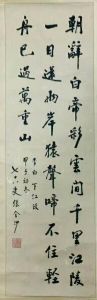 朝辭白帝彩雲間千里江陵
一日還兩岸猿聲啼不住輕
舟已過萬重山
李白下江陵